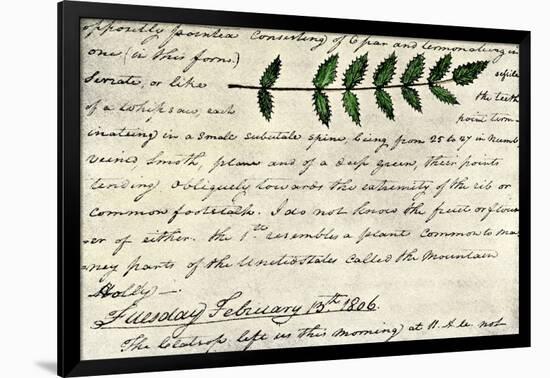 oppositly pointed consisting of 6 par and termonateing in
one (in this form.) sessile
Serrate, or like the teeth
of a whipsaw, each point term-
inateing in a small subulate spine, being from 25 to 27 in numb
veined, smoth, plane and of a deep green, their points
tending obliquely towards the extremity of the rib or
common footstalk. I do not know the fruit or flow
er of either. the 1st resembles a plant common to ma
ney parts of the United states called the Mountain
Holly—
Tuesday February 13th 1806
The Clatsops left us this morning at 11. A.M. not